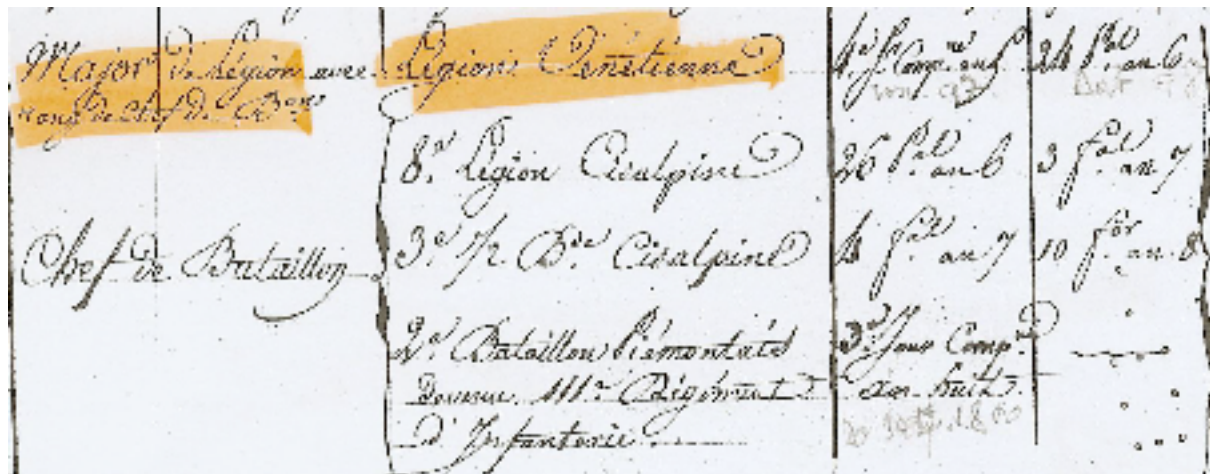 Major de Légion avec
rang de chef de B.ons
Légion Vénétienne
4.e j.r Comp.re an 5
24 P.al an 6
8.e Légion Cisalpine
26 P.al an 6
3 f.al an 7
Chef de Bataillon
3.e 1/2 B.de Cisalpine
4 f.al an 7
10 f.or an 8
2.e Bataillon Piémontais
devenu 111.e Régiment
d'Infanterie
3.e Jour Comp.re
an huit
20 Sept. 1800